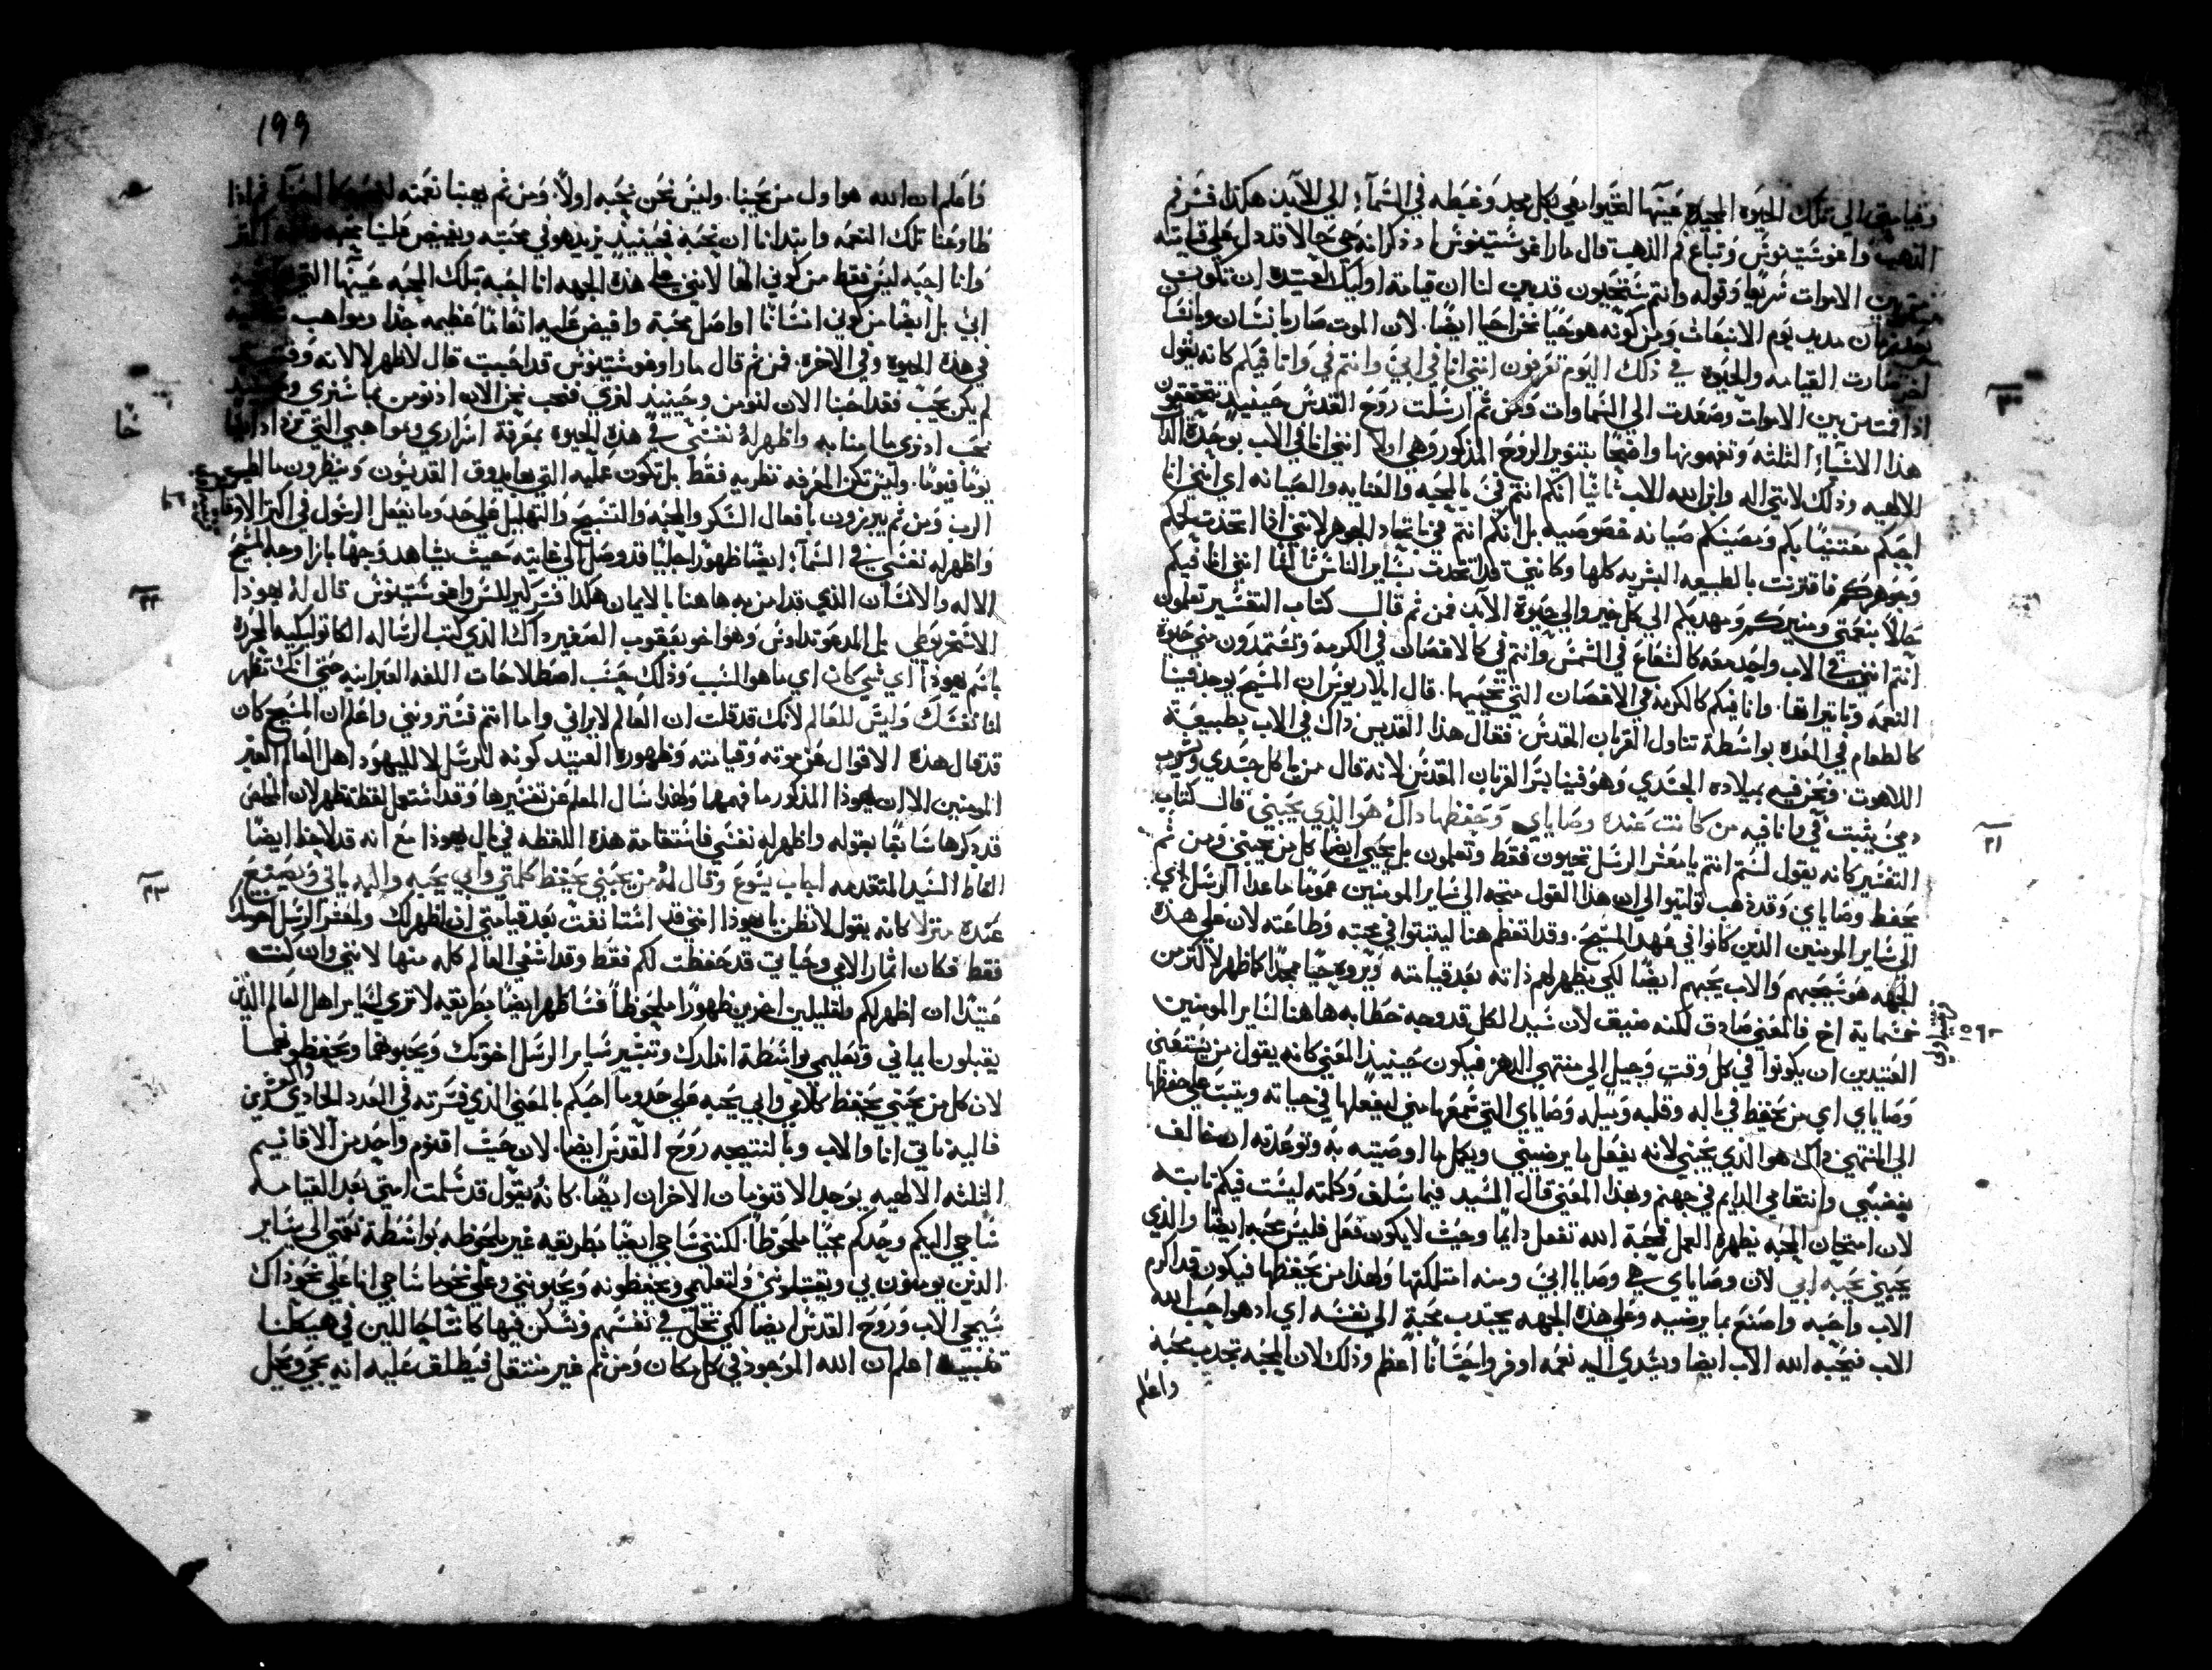 وقيامتي الي تلك الحيوه المجيده عينها لتحيوا معي بكل مجد وغبطه في السمآء الي الابد هكذا فسر فم
الذهب واغوسْتينوسْ وتباع فم الذهب قال مار اغوسْتينوسْ اذ ذكر انه حي حالا قد دل علي قيامته
من بين الاموات سْريعا وقوله وانتم سْتحيون قد بين لنا ان قيامة اوليك العتيده ان تكون
بعد زمان مديد يوم الانبعاث ومن كونه هو حيا نحن احيا ايضا. لان الموت صار بانسْان وبانسْان
اخر صارت القيامه والحيوه في ذلك اليوم تعرفون انني انا في ابي وانتم في وانا فيكم كانه يقول
اذا قمت من بين الاموات وصعدت الي السْماوات ومن ثم ارسْلت روح القدسْ حينيذ تتحققون
هذا الاشيآء الثلثه وتفهمونها واضحا بتنوير الروح المذكور وهي اولا انني انا في الاب بوحدة الذات
الالهيه وذلك لانني اله وابن الله الاب ثانيا انكم انتم في بالمحبه والعنايه والصيانه اي انني انا
احبكم معتنيا بكم وبصيتكم صيانه خصوصيه بل انكم انتم في باتحاد الجوهر لانني اذا اتخذت لحمكم
وجوهركم فاقترنت بالطبيعه البشريه كلها وكانني قد اتحدت بسْاير الناسْ ثالثا انني انا فيكم
حالا بنعمتي ومنيركم ومهديكم الي كل خير والي حيوة الابد فمن ثم قال كتاب التفسْير تعلمون
انتم انني في الاب واحد معه كالشعاع في الشمسْ وانتم في كالاغصان في الكرمه وتسْتمدون مني حيوة
النعمه وتاثيراتها. وانا فيكم كالكرمه في الاغصان التي تحييها. قال ايلاريوسْ ان المسْيح يوجد فينا
كالطعام في المعده بواسْطة تناول القربان المقدسْ. فقال هذا القديسْ ذاك في الاب بطبيعة
اللاهوت. ونحن فيه بميلاده الجسْدي وهو فينا بسْر القربان المقدسْ لانه قال من ياكل جسْدي ويشرب
دمي يثبت في وانا فيه من كانت عنده وصاياي وحفظها ذاك هو الذي يحبني قال كتاب
التفسْير كانه يقول لسْتم انتم يا معشر الرسْل تحبون فقط وتعلمون بل يحبني ايضا كل من يحبني ومن ثم
يحفظ وصاياي وقد ذهب توليتوا الي ان هذا القول متجه الي سْاير المومنين عموما ما عدا الرسْل اي
الي سْاير المومنين الذين كانوا في عهد المسْيح. وقد اتعظم هنا ليثبتوا في محبته وطاعته لان علي هذه
الجهه هو سْيحبهم والاب يحبهم ايضا لكي يظهر لهم ذاته بعد قيامته ويروه حيا ممجدا كما ظهر لاكثر من
خمسْمايه اخ فالمعني صادق لكنه ضيق لان سْيد الكل قد وجه خطابه هاهنا لسْاير المومنين
العتيدين ان يكونوا في كل وقت وجيل الي منتهي الدهر فيكون حينيذ المعني كانه يقول من يسْتقني
وصاياي اي من يحفظ في باله وقلبه وميله وصاياي التي سْمعها مني ليفعلها في حياته ويثبت علي حفظها
الي المنتهي ذاك هو الذي يحبني لانه يفعل ما يرضيني ويكمل ما اوصيته به وتوعدته ان خالف
بغضبي وانتقامي الدايم في جهنم وبهذا المعني قال السْيد فيما سْلف وكلمته ليسْت فيكم ثابته
لان امتحان المحبه يظهره العمل فمحبة الله تفعل دايما وحيث لا يكون فعل فليسْ محبه ايضا والذي
يحبني يحبه ابي لان وصاياي هي وصايا ابي ومنه امتلكتها ولهذا من يحفظها فيكون قد اكرم
الاب واحبه واصنع بما يرضيه وعلي هذه الجهه يجتذب محبة الي نفسْه اي اذ هو احب الله
الاب فيحبه الله الاب ايضا ويسْدي اليه نعمه اوفر واحسْانا اعظم وذلك لان المحبه تجذب محبه
واعلم
٣٠
٢١
١٩٩
واعلم ان الله هو اول من يحبنا. وليسْ نحن نحبه اولا. ومن ثم يهبنا نعمته فاذا
طاوعنا تلك النعمه وابتدانا ان نحبه فحينيذ يزيد هو في محبته ويفيض علينا نعمه اكثر
وانا احبه ليسْ فقط من كوني الها لانني علي هذه الجهه انا احبه بتلك المحبه عينها التي
ابي بل ايضا من كوني انسْانا اواصل محبة وافيض عليه انعاما عظيمه جدا ومواهب
في هذه الحيوه وفي الاخره. فمن ثم قال مار اوغوسْتينوسْ قد احببت قال لاظهر لا لانه وقتيذ
لم يكن يحب فقد احبنا الان لنومن وحينيذ لنري فنحب نحن الان اذ نومن بما سْنري وحينيذ
نحب اذ نري ما امنا به واظهر له نفسْي في هذه الحيوه بمعرفة اسْراري ومواهبي التي تزداد ايضا
يوما فيوما. وليسْ تكن المعرفه نظريه فقط بل تكون عمليه التي بها يذوق القديسْون وينظرون ما اطيب
الرب ومن ثم يبرزون بافعال الشكر والمحبه والتسْبيح والتهليل علي حد ما يفعل الرسْول في اكثر الاوقات
واظهر له نفسْي في السْمآء ايضا ظهورا جليا قد وصل الي غايته حيث يشاهد وجها بازا وجه المسْيح
الاله والانسْان الذي قد امن به هاهنا بالايمان هكذا فسْر كيرللسْ واغوسْتينوسْ قال له يهوذا
لا الاسْخريوطي بل المدعو تداوسْ وهو اخو يعقوب الصغير ذاك الذي كتب الرسْاله الكاثوليكيه المحرره
باسْم يهوذا اي شي كان اي ما هو السْبب وذلك حسْب اصطلاحات اللغه العبرانيه حتي انك تظهر
لنا نفسْك وليسْ للعالم لانك قد قلت ان العالم لا يراني واما انتم فسْترونني واعلم ان المسْيح كان
قد قال هذه الاقوال عن موته وقيامته وظهوره العتيد كونه للرسْل لا لليهود اهل العالم الغير
المومنين الا ان يهوذا المذكور ما فهمها ولهذا سْال المعلم عن تفسْيرها وقد اسْتعمل لفظة تظهر لان المخلص
قد ذكرها سْابقا بقوله واظهر له نفسْي فاسْتقامة هذه اللفظه في بال يهوذا مع انه قد لاحظ ايضا
الفاظ السْيد المتقدمه اجاب يسْوع وقال له من يحبني يحفظ كلمتي وابي يحبه واليه ياتي ويصنع
عنده منزلا كانه يقول لا تظن يا يهوذا انني قد اسْتانفت بعد قيامتي ان اظهر لك ولمعشر الرسْل اخوتك
فقط فكان اثمار الامي وحياتي قد حفظت لكم فقط وقد اسْتفي العالم كله منها لانني وان كنت
عتيدا ان اظهر لكم ولقليلين اخرين ظهورا ملحوظا فسْاظهر ايضا بطريقه لا تري لسْاير اهل العالم الذين
يقبلون ايماني وتعليمي بواسْطة انذارك وتبشير سْاير الرسْل اخوتك ويحبونهما ويحفظونهما
لان كل من يحبني يحفظ كلامي وابي يحبه علي حد ما احبكم بالمعني الذي فسْرته في العدد الحادي والعشرين
فاليه ناتي انا والاب وبالنتيجه روح القدسْ ايضا. لان حيث اقنوم واحد من الاقانيم
الثلثه الالهيه يوجد الاقنومان الاخران ايضا. كانه يقول قد سْلمت امتي بعد القيامه
سْاجي اليكم وحدكم مجيا ملحوظا. لكنني سْاجي ايضا بطريقه غير ملحوظه بواسْطة نعمتي الي سْاير
الذين يومنون بي ويقبلونني ولتعليمي ويحفظونه ويحبونني وعلي نحو ما سْاجي انا علي نحو ذاك
سْيجي الاب وروح القدسْ ايضا لكي نحل في نفسْهم ونسْكن فيها كاننا جاللين في هيكلنا
تنبيه اعلم ان الله الموجود في كل مكان ومن ثم غير منتقل فيطلق عليه انه يجي ويحل
٢٢
٢٣